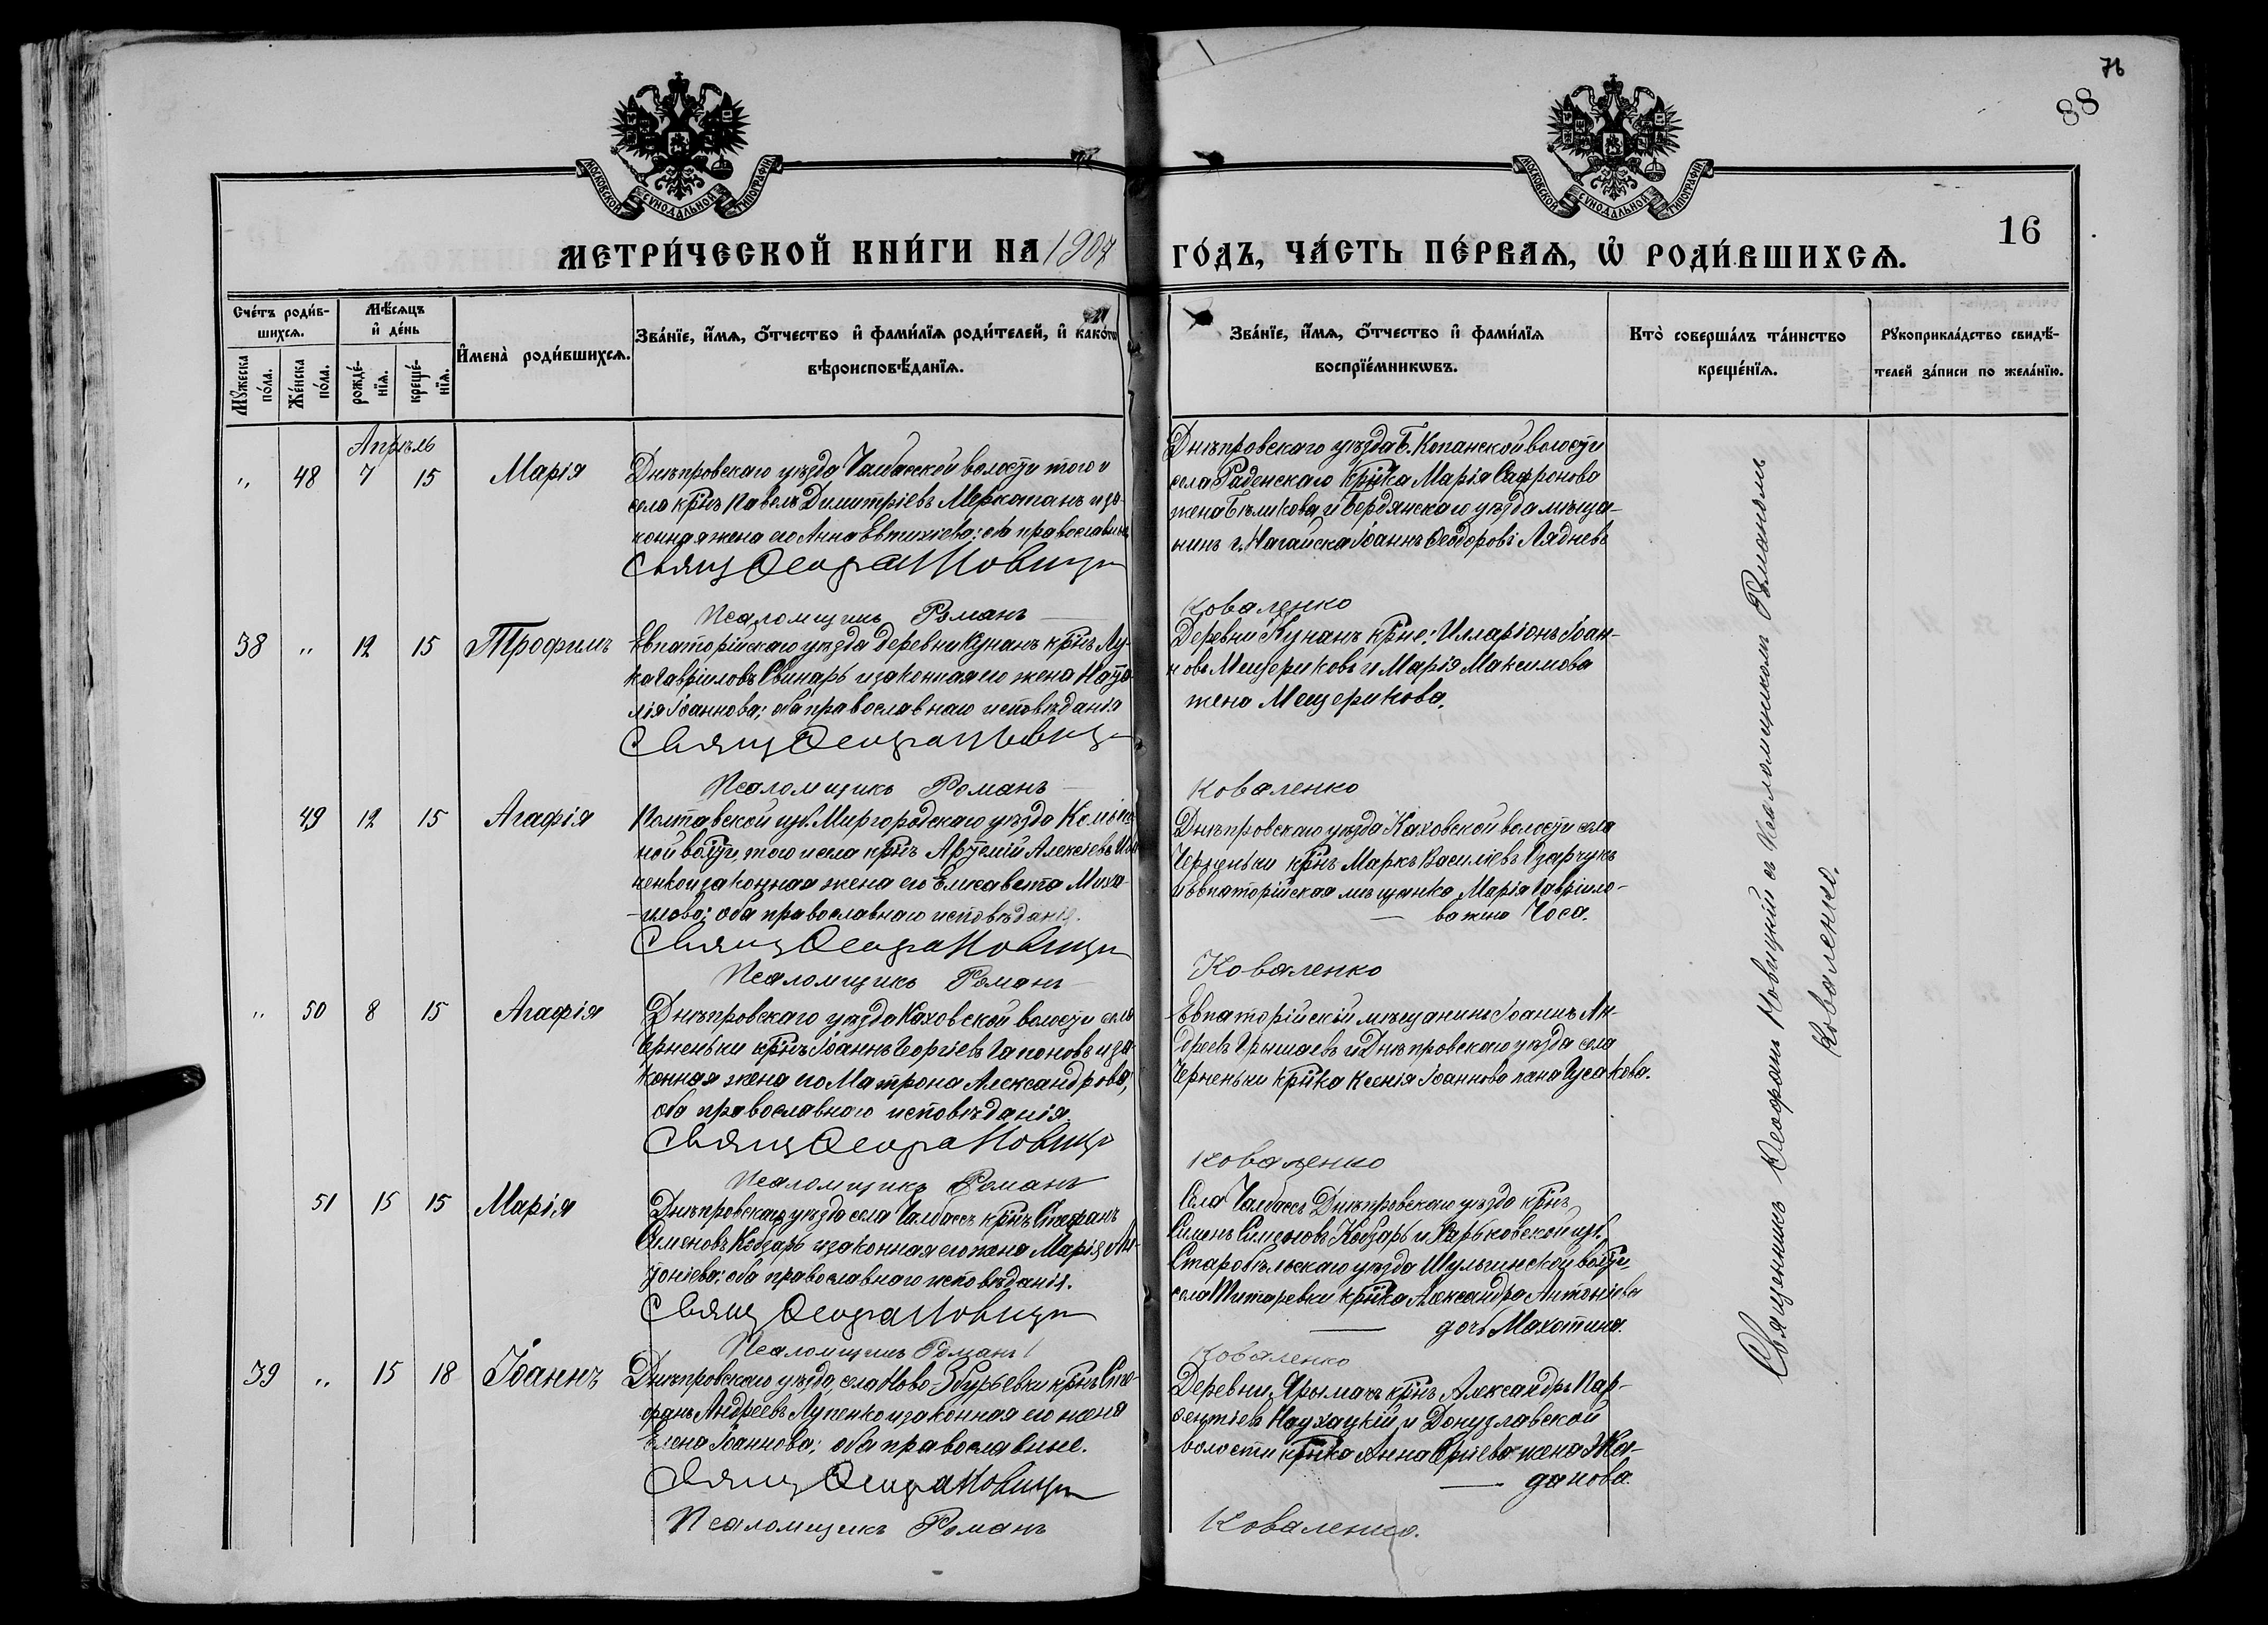 76
88
16
МОСКОВСКОЙ СѴНОДАЛЬНОЙ ТИПОГРАФІИ
МОСКОВСКОЙ СѴНОДАЛЬНОЙ ТИПОГРАФІИ
МЕТРИ́ЧЕСКОЙ КНИ́ГИ НА 1907 ГО́ДЪ, ЧА́СТЬ ПЕ́РВАѦ, Ѡ҆ РОДИ́ВШИХСѦ.
Сче́тъ роди́в-
шихсѧ.
Мꙋжеска по́ла.
Же́нска по́ла.
Мѣ́сѧцъ и҆ де́нь
рожде́-нїѧ.
креще́-нїѧ.
И҆мена̀ роди́вшихсѧ.
Зва́нїе, и҆́мѧ, ѻ҆́тчество и҆ фами́лїѧ роди́телей, и҆ како́гѡ
вѣроисповѣ́данїѧ.
Зва́нїе, и҆́мѧ, ѻ҆́тчество и҆ фами́лїѧ
воспрїе́мникѡвъ.
Кто̀ соверша́лъ та́инство
креще́нїѧ.
Рꙋкоприкла́дство свидѣ́-
телей за́писи по жела́нїю.
Апрѣль
" 48 7 15 Марія
Днѣпровскаго уѣзда Чалбасской волости того и
села крнъ Павелъ Димитріевъ Меркотанъ и за-
конная жена его Анна Евтихіева; оба православные
Свящ Ѳеофан Новицки
Псаломщикъ Романъ
Днѣпровскаго уѣзда Б. Копанской волости
села Раденскаго крнка Марія Сафронова
жена Бѣликова и Бердянскаго уѣзда мѣща-
нинъ г. Нагайска Іоаннъ Ѳеодоровъ Лядневъ
Коваленко
38 " 12 15 Трофимъ
Евпаторійскаго уѣзда деревни Кунанъ крнъ Лу-
ка Гавріиловъ Свинарь и законная его жена Ната-
лія Іоаннова; оба православнаго исповѣданія
Свящ Ѳеофан Новицки
Псаломщикъ Романъ
Деревни Кунанъ крне: Илларіонъ Іоан-
новъ Мещериковъ и Марія Максимова
жена Мещерикова.
Коваленко
49 12 15 Агафія
Полтавской губ. Миргородскаго уѣзда
ной вости, того и села крнъ Артемій Алексіевъ
ненко и законная жена его Елисавета Миха-
илова; оба православнаго исповѣданія.
Свящ Ѳеофан Новицки
Псаломщикъ Романъ
Днѣпровскаго уѣзда Каховской волости села
Черненьки крнъ Маркъ Василіевъ Озарчукъ
и Евпаторійская мѣщанка Марія Гавріило-
ва жена Чоса.
Коваленко
" 50 8 15 Агафія
Днѣпровскаго уѣзда Каховской волости села
Черненьки крнъ Іоаннъ Георгіевъ Гапоновъ и за-
конная жена его Матрона Александрова,
оба православнаго исповѣданія.
Свящ Ѳеофан Новицки
Псаломщикъ Романъ
Евпаторійскій мѣщанинъ Іоаннъ Ан-
дреевъ Грышаевъ и Днѣпровскаго уѣзда села
Черненьки крнка Ксенія Іоаннова Гусакова.
Коваленко
51 15 15 Марія
Днѣпровскаго уѣзда села Чалбассъ крнъ Стефанъ
Симеоновъ Кобзарь и законная его жена Марія Ан-
тоніева; оба православнаго исповѣданія.
Свящ Ѳеофан Новицки
Псаломщикъ Романъ
Села Чалбассъ Днѣпровскаго уѣзда крнъ
Симеонъ Симеоновъ Кобзарь и Харьковской губ.
Старобѣльскаго уѣзда Шульгинской вости
села Титаревки крнка Александра Антоніева
дочь Махотина.
Коваленко
39 " 15 18 Іоаннъ
Днѣпровскаго уѣзда, села Ново-Збурьевки крнъ Сте-
фанъ Андреевъ Лупенко и законная его жена
Елена Іоаннова; оба православные.
Свящ Ѳеофан Новицки
Псаломщикъ Романъ
Деревни Ярымачъ крнъ Александръ Пар-
ѳентіевъ Наухацкій и Донузлавской
волости крнка Анна Юріева жена Жа-
данова.
Коваленко.
Священникъ Ѳеофанъ Новицкій съ Псаломщикомъ Романомъ
Коваленко.